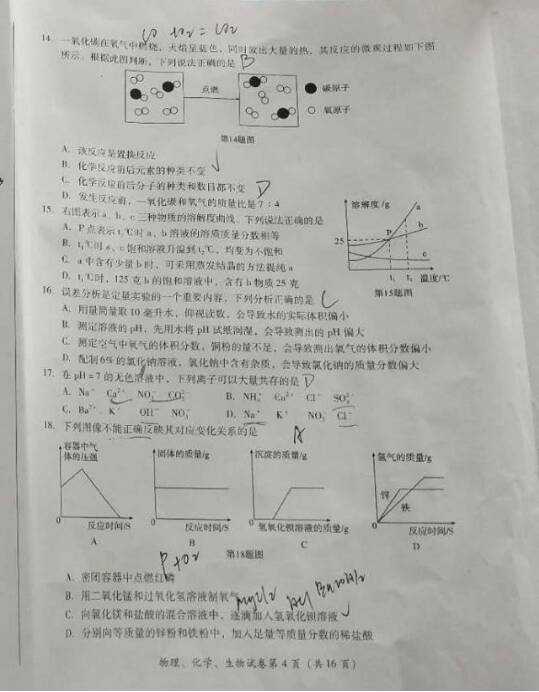 CO +O₂ = CO₂
14. 一氧化碳在氧气中燃烧，火焰呈蓝色，同时放出大量的热，其反应的微观过程如下图
所示。根据此图判断，下列说法正确的是 B
点燃
碳原子
氧原子
第14题图
A. 该反应是置换反应
B. 化学反应前后元素的种类不变
C. 化学反应前后分子的种类和数目都不变
D. 发生反应前，一氧化碳和氧气的质量比是7：4
15. 右图表示a、b、c三种物质的溶解度曲线，下列说法正确的是 D
A. P点表示t₁℃时a、b溶液的溶质质量分数相等
B. t₁℃时a、c饱和溶液升温到t₂℃，均变为不饱和
C. a中含有少量b时，可采用蒸发结晶的方法提纯a
D. t₁℃时，125克b的饱和溶液中，含有b物质25克
溶解度/g
a
b
P
25
c
0
t₁ t₂ 温度/℃
第15题图
16. 误差分析是定量实验的一个重要内容，下列分析正确的是 C
A. 用量筒量取10毫升水，仰视读数，会导致水的实际体积偏小
B. 测定溶液的pH，先用水将pH试纸润湿，会导致测出的pH偏大
C. 测定空气中氧气的体积分数，铜粉的量不足，会导致测出氧气的体积分数偏小
D. 配制6%的氯化钠溶液，氯化钠中含有杂质，会导致氯化钠的质量分数偏大
17. 在pH=7的无色溶液中，下列离子可以大量共存的是 D
A. Na⁺ Ca²⁺ NO₃⁻ CO₃²⁻ B. NH₄⁺ Cu²⁺ Cl⁻ SO₄²⁻
C. Ba²⁺ K⁺ OH⁻ NO₃⁻ D. Na⁺ K⁺ NO₃⁻ Cl⁻
18. 下列图像不能正确反映其对应变化关系的是 A
容器中气
体的压强
0
反应时间/S
A
固体的质量/g
0
反应时间/S
B
沉淀的质量/g
0
氢氧化钡溶液的质量/g
C
氢气的质量/g
锌
铁
0
反应时间/S
D
P+O₂
第18题图
A. 密闭容器中点燃红磷
B. 用二氧化锰和过氧化氢溶液制氧气
MgCl₂ HCl Ba(OH)₂
C. 向氯化镁和盐酸的混合溶液中，逐滴加入氢氧化钡溶液
D. 分别向等质量的锌粉和铁粉中，加入足量等质量分数的稀盐酸
物理、化学、生物试卷第4页（共16页）